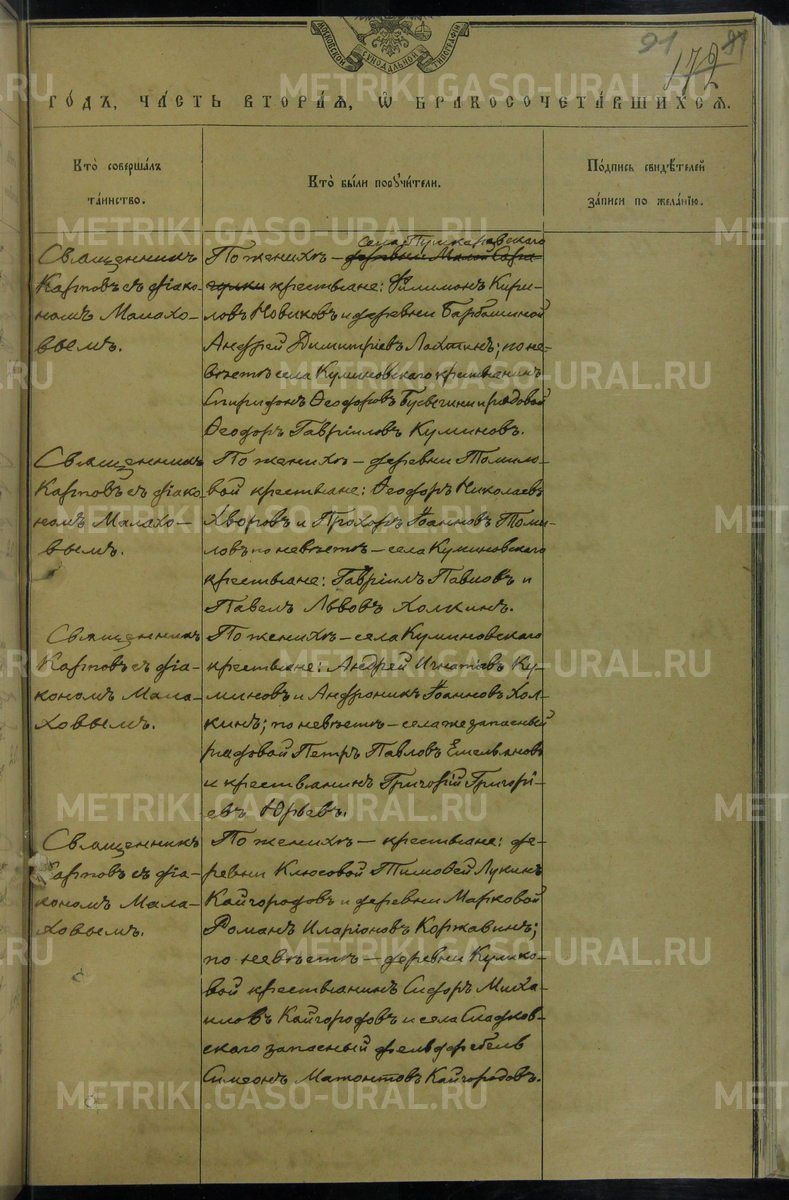 МОСКОВСКОЙ СѴНОДАЛЬНОЙ ТИПОГРАФІИ
91 87
172
ГО́ДЪ, ЧА́СТЬ ВТОРА́Я, Ѡ БРАКОСОЧЕТА́ВШИХСЯ.
Кто̀ соверша́лъ
та́инство.
Кто̀ бы́ли порꙋчи́тели.
По́дпись свидѣ́телей
за́писи по жела́нію.
Священникъ
Карповъ съ діако-
номъ Малахо-
вымъ.
села Пушкаревскаго
По женихѣ – деревни Малой
крестьяне: Филимонъ Кири-
ловъ Новиковъ и деревни Барбашиной
Андрей Димитріевъ Лахтинъ; по не-
вѣстѣ села Куминовскаго крестьянинъ
Спиридонъ Ѳеодоровъ и рядовой
Ѳеодоръ Гавріиловъ Куминовъ.
Священникъ
Карповъ съ діако-
номъ Малахо-
вымъ.
По женихѣ – деревни Томило-
вой крестьяне: Ѳеодоръ Николаевъ
Хворовъ и Прохоръ Іоанновъ Томи-
ловъ по невѣстѣ – села Куминовскаго
крестьяне: Гавріилъ Павловъ и
Павелъ Львовъ Холкинъ.
Священникъ
Карповъ съ діа-
кономъ Мала-
ховымъ.
По женихѣ – села Куминовскаго
крестьяне: Андрей Игнатіевъ Ку-
миновъ и Андроникъ Іоанновъ Хол-
кинъ; по невѣстѣ – села же запасный
рядовой Петръ Павловъ Емельяновъ
и крестьянинъ Григорій Григорі-
евъ Юрьевъ.
Священникъ
Карповъ съ діа-
кономъ Мала-
ховымъ.
По женихѣ – крестьяне: де-
ревни Клюсовой Тимоѳей Лукинъ
Кайгородовъ и деревни Марковой
Романъ Иларіоновъ Коржавинъ;
по невѣстѣ – деревни Кулико-
вой крестьянинъ Сидоръ Миха-
иловъ Кайгородовъ и села Сладков-
скаго запасный фельдфебель
Симеонъ Матонтовъ Кайгородовъ.
METRIKI.GASO-URAL.RU